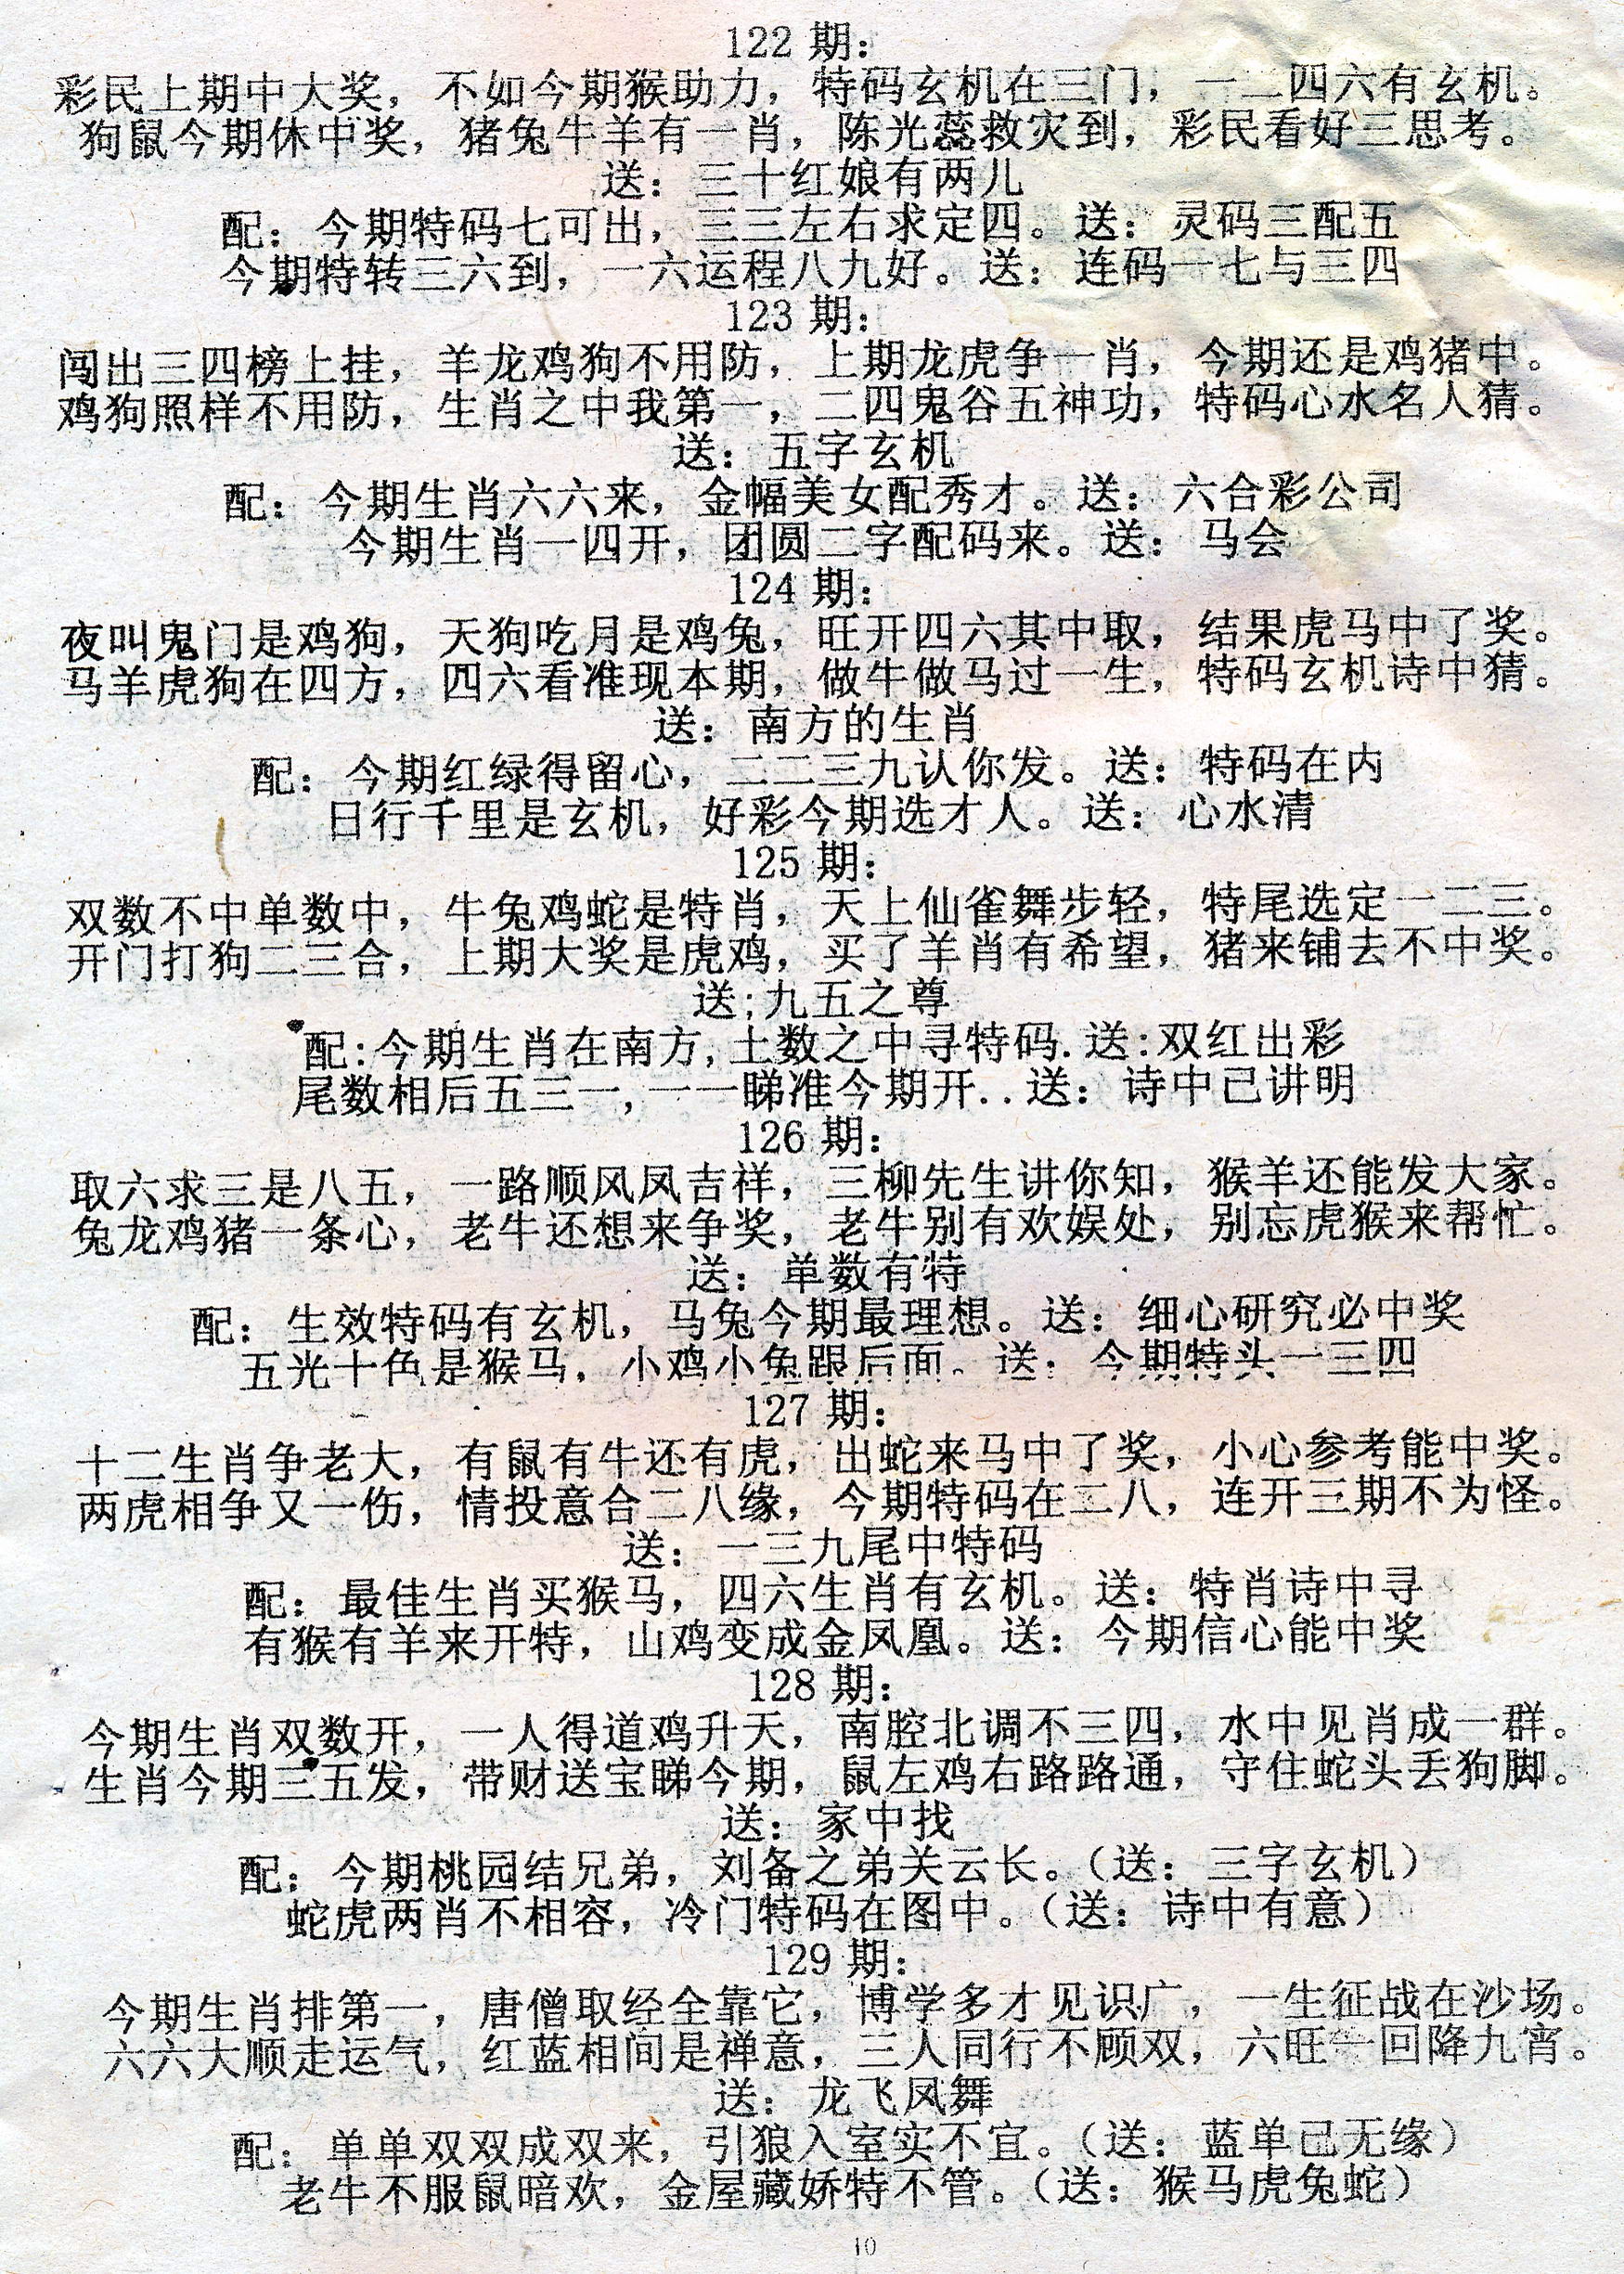 122 期：
彩民上期中大奖，不如今期猴助力，特码玄机在三门，一二四六有玄机。
狗鼠今期休中奖，猪兔牛羊有一肖，陈光蕊救灾到，彩民看好三思考。
送：三十红娘有两儿
配：今期特码七可出，三三左右求定四。送：灵码三配五
今期特转三六到，一六运程八九好。送：连码一七与三四
123 期：
闯出三四榜上挂，羊龙鸡狗不用防，上期龙虎争一肖，今期还是鸡猪中。
鸡狗照样不用防，生肖之中我第一，二四鬼谷五神功，特码心水名人猜。
送：五字玄机
配：今期生肖六六来，金幅美女配秀才。送：六合彩公司
今期生肖一四开，团圆二字配码来。送：马会
124 期：
夜叫鬼门是鸡狗，天狗吃月是鸡兔，旺开四六其中取，结果虎马中了奖。
马羊虎狗在四方，四六看准现本期，做牛做马过一生，特码玄机诗中猜。
送：南方的生肖
配：今期红绿得留心，二二三九认你发。送：特码在内
日行千里是玄机，好彩今期选才人。送：心水清
125 期：
双数不中单数中，牛兔鸡蛇是特肖，天上仙雀舞步轻，特尾选定一二三。
开门打狗二三合，上期大奖是虎鸡，买了羊肖有希望，猪来铺去不中奖。
送;九五之尊
配:今期生肖在南方,土数之中寻特码.送:双红出彩
尾数相后五三一,一一睇准今期开..送：诗中己讲明
126 期：
取六求三是八五，一路顺风凤吉祥，三柳先生讲你知，猴羊还能发大家。
兔龙鸡猪一条心，老牛还想来争奖，老牛别有欢娱处，别忘虎猴来帮忙。
送：单数有特
配：生效特码有玄机，马兔今期最理想。送：细心研究必中奖
五光十色是猴马，小鸡小兔跟后面。送：今期特头一三四
127 期：
十二生肖争老大，有鼠有牛还有虎，出蛇来马中了奖，小心参考能中奖。
两虎相争又一伤，情投意合二八缘，今期特码在二八，连开三期不为怪。
送：一三九尾中特码
配：最佳生肖买猴马，四六生肖有玄机。送：特肖诗中寻
有猴有羊来开特，山鸡变成金凤凰。送：今期信心能中奖
128 期：
今期生肖双数开，一人得道鸡升天，南腔北调不三四，水中见肖成一群。
生肖今期三五发，带财送宝睇今期，鼠左鸡右路路通，守住蛇头丢狗脚。
送：家中找
配：今期桃园结兄弟，刘备之弟关云长。（送：三字玄机）
蛇虎两肖不相容，冷门特码在图中。（送：诗中有意）
129 期：
今期生肖排第一，唐僧取经全靠它，博学多才见识广，一生征战在沙场。
六六大顺走运气，红蓝相间是禅意，三人同行不顾双，六旺一回降九宵。
送：龙飞凤舞
配：单单双双成双来，引狼入室实不宜。（送：蓝单己无缘）
老牛不服鼠暗欢，金屋藏娇特不管。（送：猴马虎兔蛇）
10